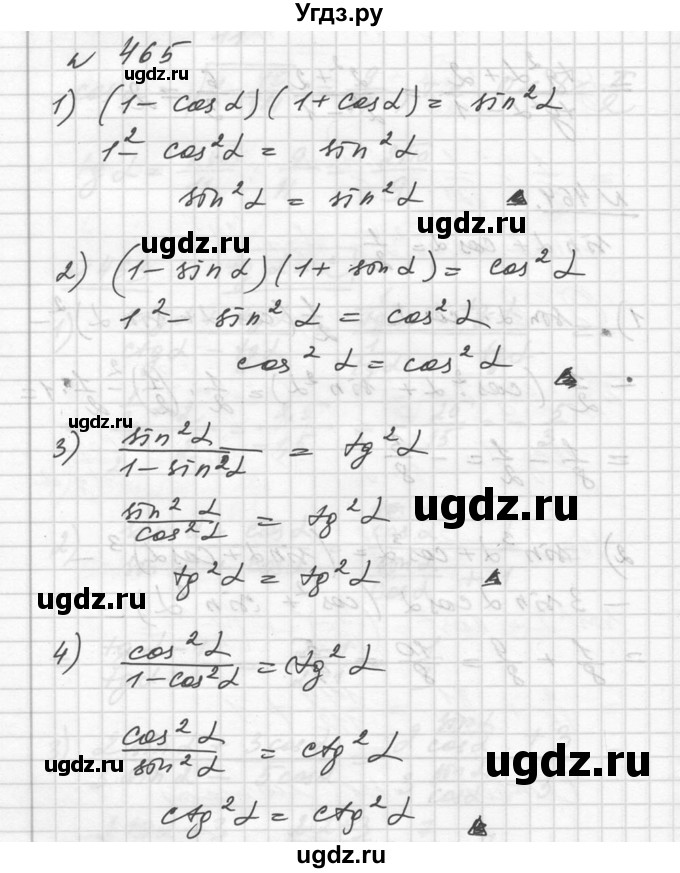 Угдз.ру
№ 465
ugdz.ru
1) (1 - cos α)(1 + cos α) = sin²α
1² - cos²α = sin²α
sin²α = sin²α
ugdz.ru
ugdz.ru
2) (1 - sin α)(1 + sin α) = cos²α
1² - sin²α = cos²α
ugdz.ru
cos²α = cos²α
ugdz.ru
3) sin²α / 1 - sin²α = tg²α
sin²α / cos²α = tg²α
ugdz.ru
tg²α = tg²α
ugdz.ru
4) cos²α / 1 - cos²α = ctg²α
cos²α / sin²α = ctg²α
ugdz.ru
ugdz.ru
ctg²α = ctg²α
ugdz.ru
ugdz.ru